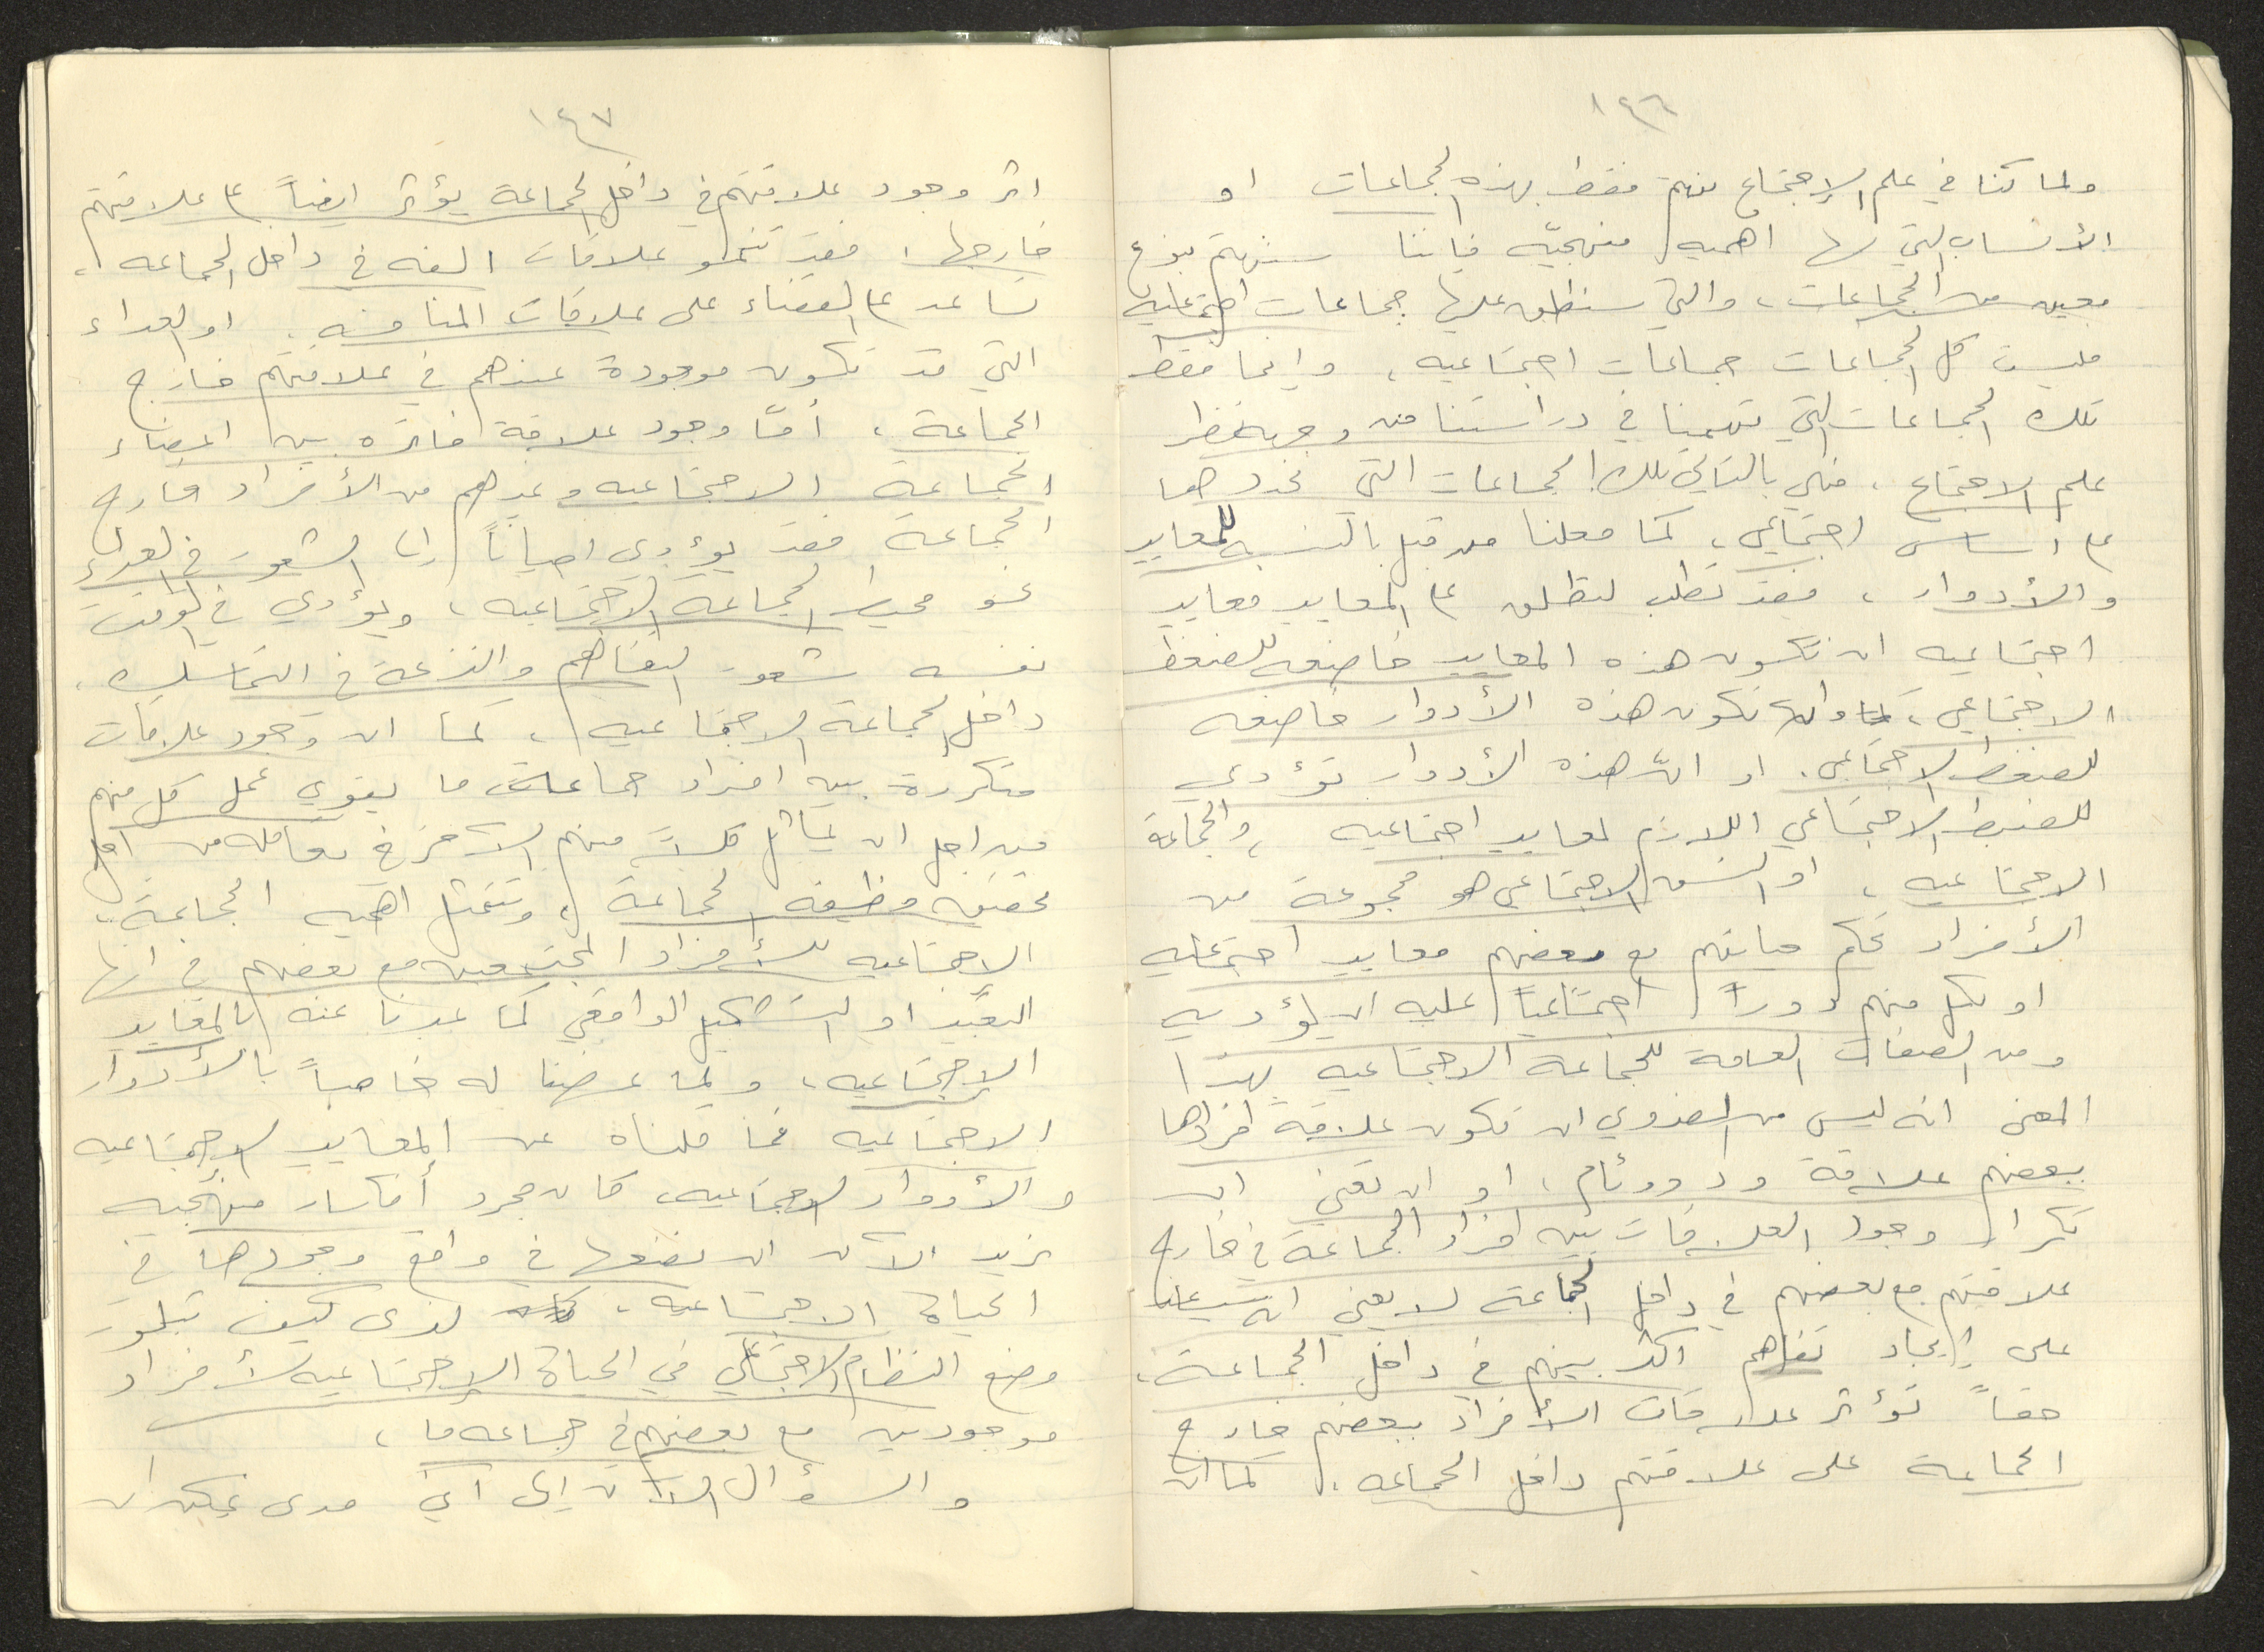 ١٤٦
ولما كنا في علم الإجتماع نهتم فقط بهذه الجماعات او
الأنساب التي لها اهميه منهجيّه فاننا سنهتم بنوع
معين من الجماعات، والتي سنطلق عليها جماعات اجتماعيه
فليست كل الجماعات جماعات اجتماعيه، وانما فقط
تلك الجماعات التي تهمنا في دراستنا من وجهة نظر
علم الاجتماع، فهي بالتالي تلك الجماعات التي نحددها
على اساس اجتماعي، كما فعلنا من قبل بالنسبه للمعايير
والأدوار، فقد تطلب لنطلق على المعايير معايير
اجتماعيه ان تكون هذه المعايير خاضعه للضغط
الاجتماعي، وان تكون هذه الأدوار خاضعه
للضغط الاجتماعي. او انّ هذه الأدوار تؤدي
للضبط الاجتماعي اللازم لمعايير اجتماعيه، والجماعة
الاجتماعيه، او النسق الاجتماعي هو مجموعة من
الأفراد تحكم حياتهم مع بعضهم معايير اجتماعيه
او لكل منهم دوراً اجتماعياً عليه ان يؤديه
ومن الصفات العامة للجماعة الاجتماعيه بهذا
المعنى انه ليس من الضروري ان تكون علاقة افرادها
ببعضهم علاقة ود ووئام، او ان تعني ان
تكرار وجود العلاقات بين افراد الجماعة في خارج
علاقتهم مع بعضهم في داخل الجماعة لا يعني انه سيساعدنا
على إيجاد تفاهم اكثر بينهم في داخل الجماعة،
حقاً تؤثر علاقات الأفراد ببعضهم خارج
الجماعة على علاقتهم داخل الجماعه، كما ان
١٤٧
اثر وجود علاقتهم في داخل الجماعة يؤثر ايضاً على علاقتهم
خارجها، فقد تنمو علاقات الفه في داخل الجماعه،
تساعد على القضاء على علاقات المنافسه، او العداء
التي قد تكون موجودة عندهم في علاقتهم خارج
الجماعة، أمّا وجود علاقة فاتره بين اعضاء
الجماعة الاجتماعيه وغيرهم من الأفراد خارج
الجماعة فقد يؤدي احياناً الى الشعور في العداء
نحو محيط الجماعة الاجتماعيه، ويؤدي في الوقت
نفسه شعور التفاهم والنزعة في التماسك
داخل الجماعة الاجتماعيه، كما ان وجود علاقات
متكررة بين افراد جماعة ما يقوي عمل كل منهم
من اجل ان يماثل كلاً منهم الآخر في تعامله من اجل
تحقيق وظيفه الجماعة، وتتمثل اهميه الجماعة
الاجتماعيه للأفراد المجتمعين مع بعضهم في انها
التعبير او التشكيل الواقعي كما عبرنا عنه بالمعايير
الاجتماعيه، ولما عرضنا له خاصاً بالأدوار
الاجتماعيه فما قلناه عن المعايير الاجتماعيه
والأدوار الاجتماعيه، كان مجرد أفكار منهجيه
نريد الآن ان نضعها في واقع وجودها في
الحياة الاجتماعيه، لنرى كيف تبلور
وضع النظام الاجتماعي في الحياة الاجتماعيه لأفراد
موجودين مع بعضهم في جماعه ما،
والسؤال الآن إلى أي مدى يمكن ان